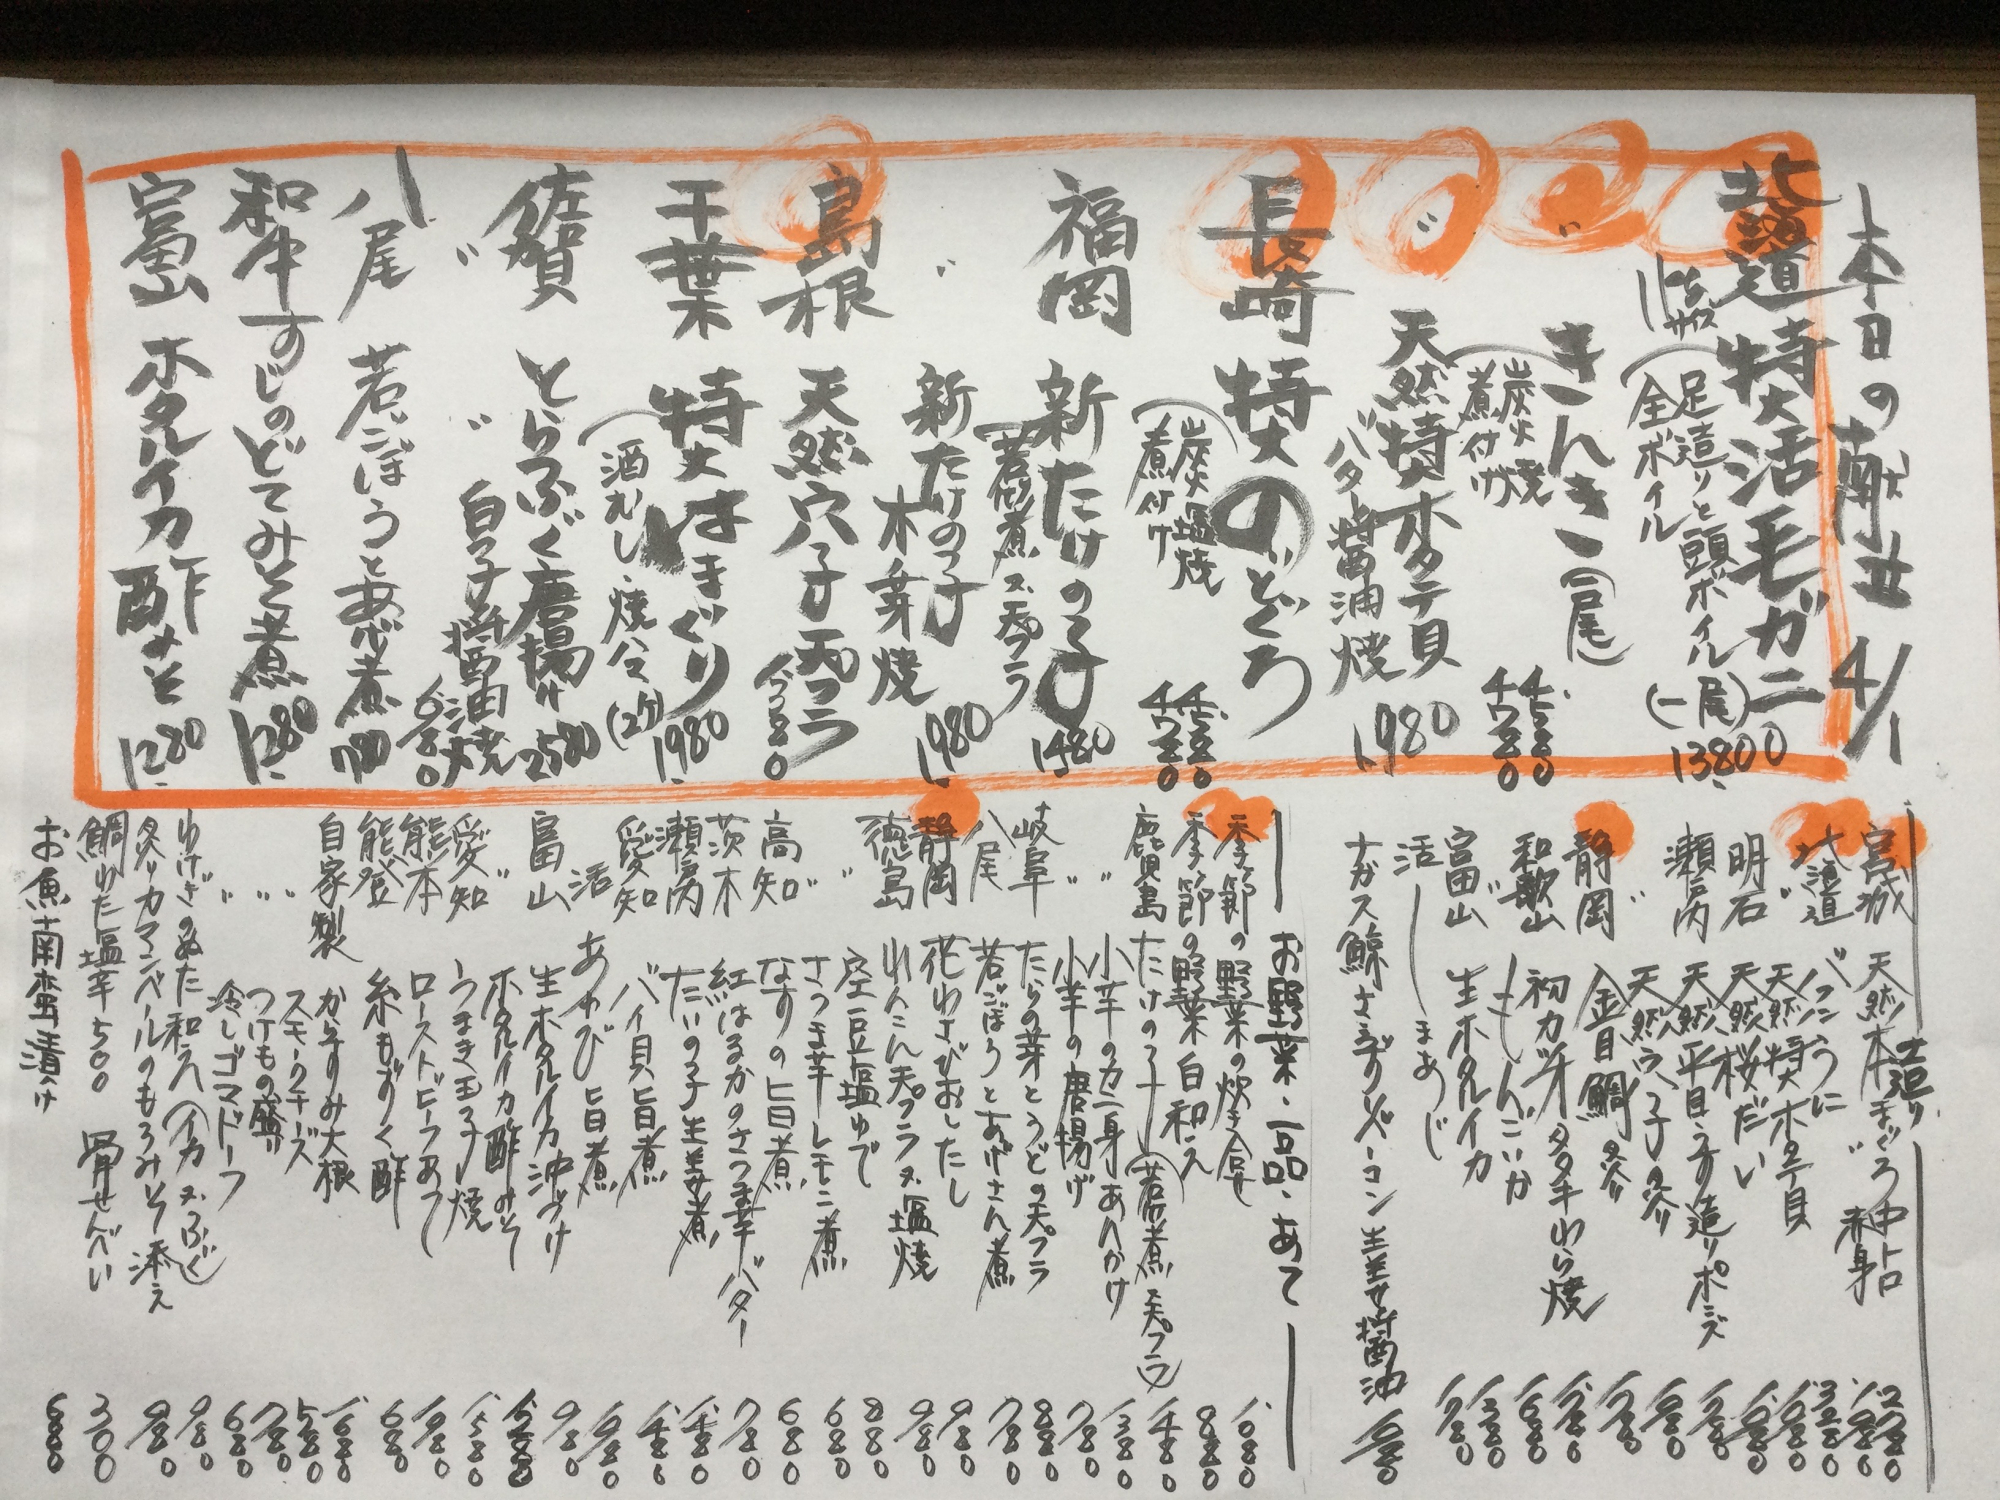 本日の献立 4/1
北海道 特大活毛ガニ
足造りと頭ボイル(一尾) 13800
全ボイル
〃 きんき(一尾)
炭火焼 4580
煮付け 4780
〃 天然特大ホタテ貝
バター醤油焼 1980
長崎 特大のどぐろ
炭火塩焼 4580
煮付け 4780
福岡 新たけの子 1480
若煮 又 天プラ
〃 新たけの子
木の芽焼 1980
島根 天然穴子天プラ 1380
千葉 特大はまぐり 1980
酒むし・焼ハマ(2ケ)
佐賀 とらふぐ唐揚げ 2580
〃 〃 白子醤油焼 1680
八尾 若ごぼうとあげ煮 780
和牛すじのどてみそ煮 1280
富山 ホタルイカ酢みそ 1280
造り
宮城 天然本まぐろ中トロ 2780
〃 赤身 1980
北海道 バフンうに 3280
〃 天然特大ホタテ貝
明石 天然桜だい
瀬戸内 天然平目うす造りポンズ
〃 天然穴子の炙り
静岡 金目鯛炙り
和歌山 初カツオタタキわら焼
〃 もんごいか
富山 生ホタルイカ
活 まあじ
ナガス鯨さえずりベーコン生姜醤油
お野菜・一品・あて
季節の野菜の炊き合せ 1080
季節の野菜白和え 880
鹿児島 たけの子(若煮 天プラ) 1480
〃 小芋のカニ身あんかけ 1380
〃 小芋の唐揚げ 780
岐阜 たらの芽とうどの天プラ 880
八尾 若ごぼうとあげさん煮 780
静岡 花わさびおしたし 980
徳島 れんこん天プラ又塩焼 980
〃 空豆塩ゆで 880
〃 さつま芋レモン煮 680
高知 なすの旨煮 680
茨木 紅はるかのさつま芋バター 780
瀬戸内 たいの子生姜煮 1480
愛知 バイ貝旨煮 1480
活 あわび旨煮 1980
富山 生ホタルイカ沖づけ 980
〃 ホタルイカ酢みそ 1280
愛知 うまき玉子焼 1380
熊本 ローストビーフあつし 1980
能登 糸もずく酢 680
自家製 からすみ大根 1680
〃 スモークチーズ 580
〃 つけもの盛り 780
〃 冷しゴマドーフ 680
わけぎのぬた和え(イカ又ふぐ) 980
炙りカマンベールのもろみそ添え 980
鯛わた塩辛500 骨せんべい 300
お魚南蛮漬け 680